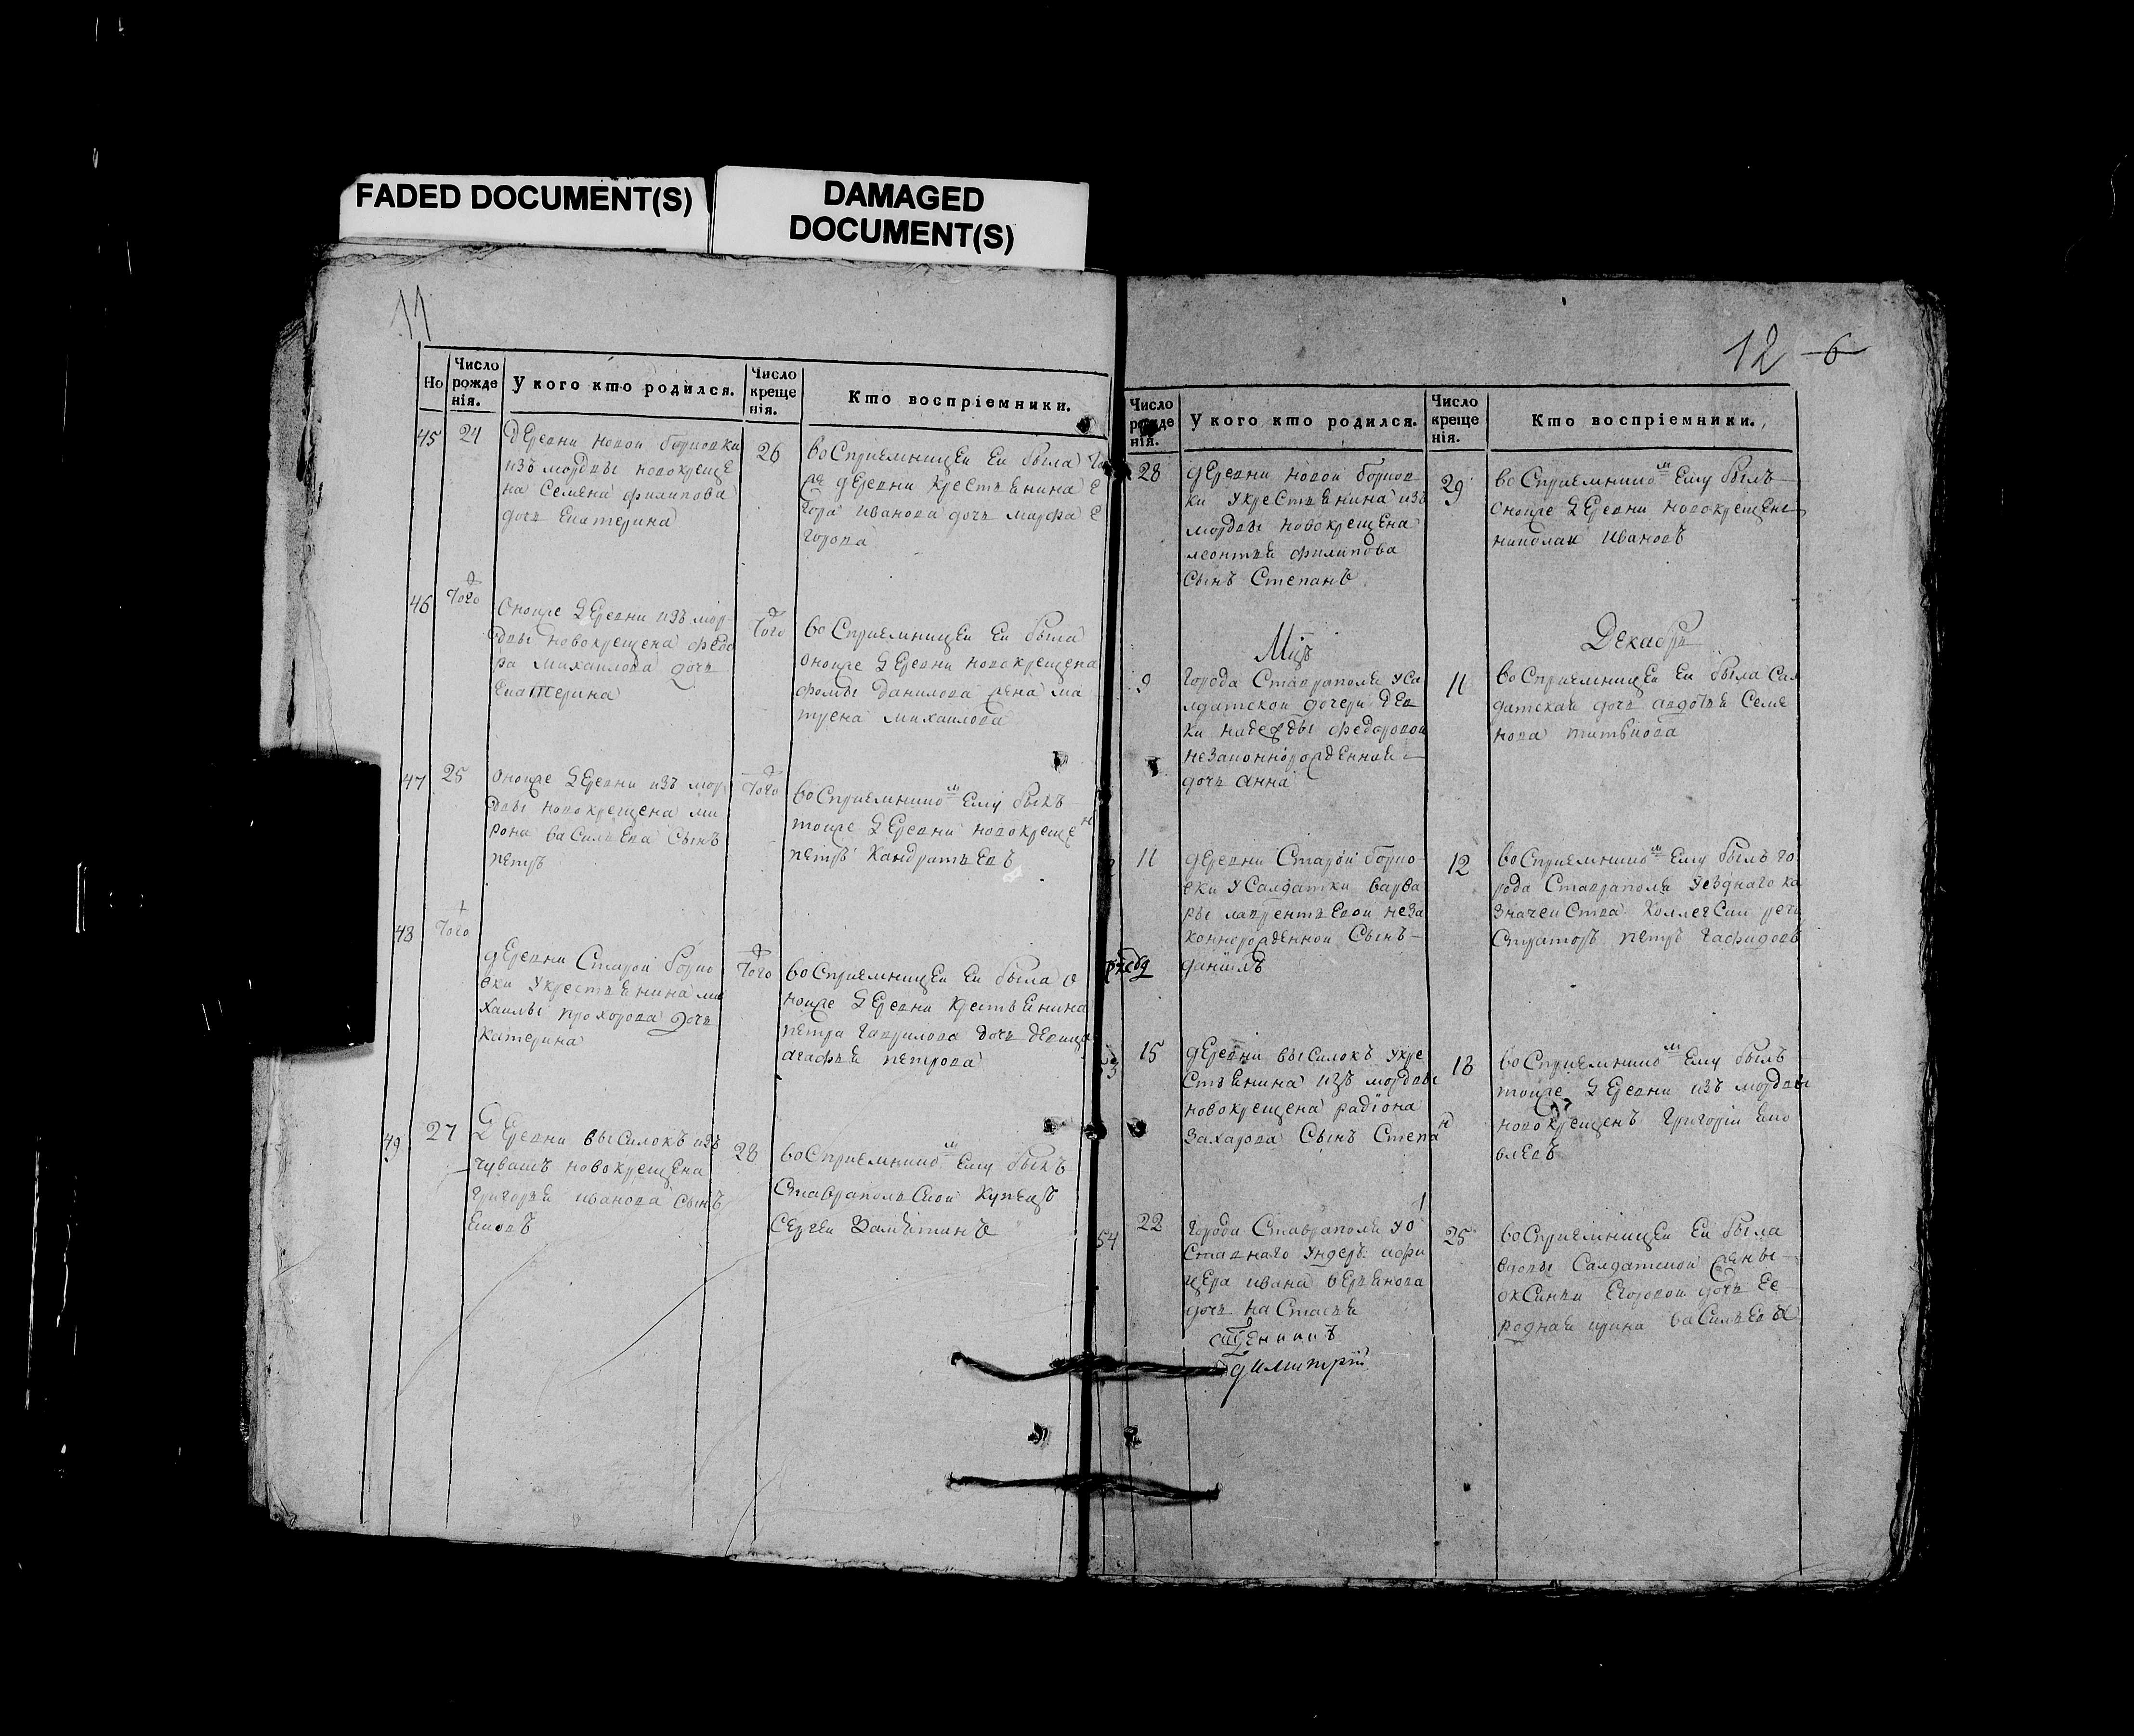 FADED DOCUMENT(S)
DAMAGED
DOCUMENT(S)
11
Но
Число рожде нія.
У кого кто родился.
Число креще нія.
Кто воспріемники.
45
24
Деревни новой борковки
изъ мордвы новокреще
на Семена филипова
дочь Екатерина
26
воСприемницей ей была
деревни крестьянина Е
гора иванова дочь марфа Е
горова
46
того
оноиже деревни изъ мор
двы новокрещена федо
ра михаилова дочь
Екатерина
того
воСприемницей ей была
оноиже деревни новокрещена
фомы данилова жена ма
трена михаилова
47
25
оноиже деревни изъ мор
двы новокрещена ми
рона васильева Сынъ
петръ
того
воСприемникомъ Ему былъ
тоиже деревни новокрещен
петръ кандратьевъ
48
того
деревни Старой борко
вки у крестьянина ми
хаилы прохорова дочь
катерина
того
воСприемницей ей была о
ноиже деревни крестьянина
петра гаврилова дочь девица
агафья петрова
49
27
Деревни выСилокъ изъ
чувашъ новокрещена
григорья иванова Сынъ
Яковъ
28
воСприемникомъ Ему былъ
Ставрапольской купецъ
Сергей
12 6
Число рожде нія.
У кого кто родился.
Число креще нія.
Кто воспріемники.
28
деревни новой борков
ки у крестьянина изъ
мордвы новокрещена
леонтья филипова
Сынъ Степанъ
29
воСприемникомъ Ему былъ
оноиже деревни новокрещенъ
николай ивановъ
Мцъ Декабрь
9
города Ставраполя у Са
лдатской дочери дев
ки надежды федоровой
незаконнорожденная
дочь анна
11
воСприемницей ей была Сал
датская дочь авдотья Семе
нова
11
деревни Старой борко
вки у Салдатки варва
ры лаврентьевой неза
коннорожденной Сынъ
даниилъ
12
воСприемникомъ Ему былъ го
рода Ставраполя уезднаго ка
значейства коллегСии реги
Страторъ петръ
53
15
деревни выСилокъ у кре
Стьянина изъ мордвы
новокрещена радіона
захарова Сынъ Степан
18
воСприемникомъ Ему былъ
тоиже деревни изъ мордвы
новокрещенъ григорій яко
влевъ
54
22
города Ставраполя у о
Ставнаго ундеръ афи
цера ивана
дочь наСтасья
25
воСприемницей ей была
вдовы Салдатской жены
окСиньи Егоровой дочь Ее
родная ирина ваСильева
Димитрій